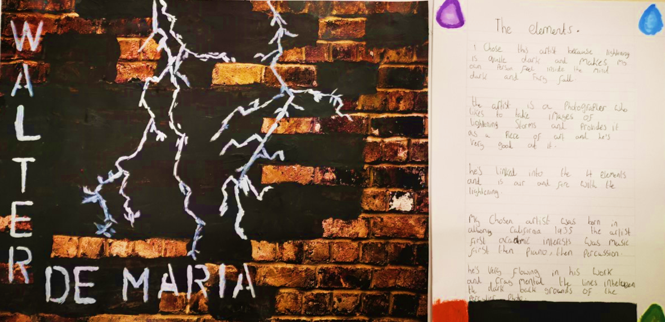 WALTER
DE MARIA
The elements.
I Chose this artist because lightning
is quite dark and makes
own feel inside the mind
dark and full
The artist is a Photographer who
likes to take images of
lightning storms and Provides it
as a Piece of art and he's
Very good at it.
he's linked into the 4 Elements
and is air and fire with the
lightning.
My Chosen artist was born in
albany the artist
first academic interests was music
first then Piano, then Percussion.
he's Very flowing in his work
and the lines
dark back grounds of the